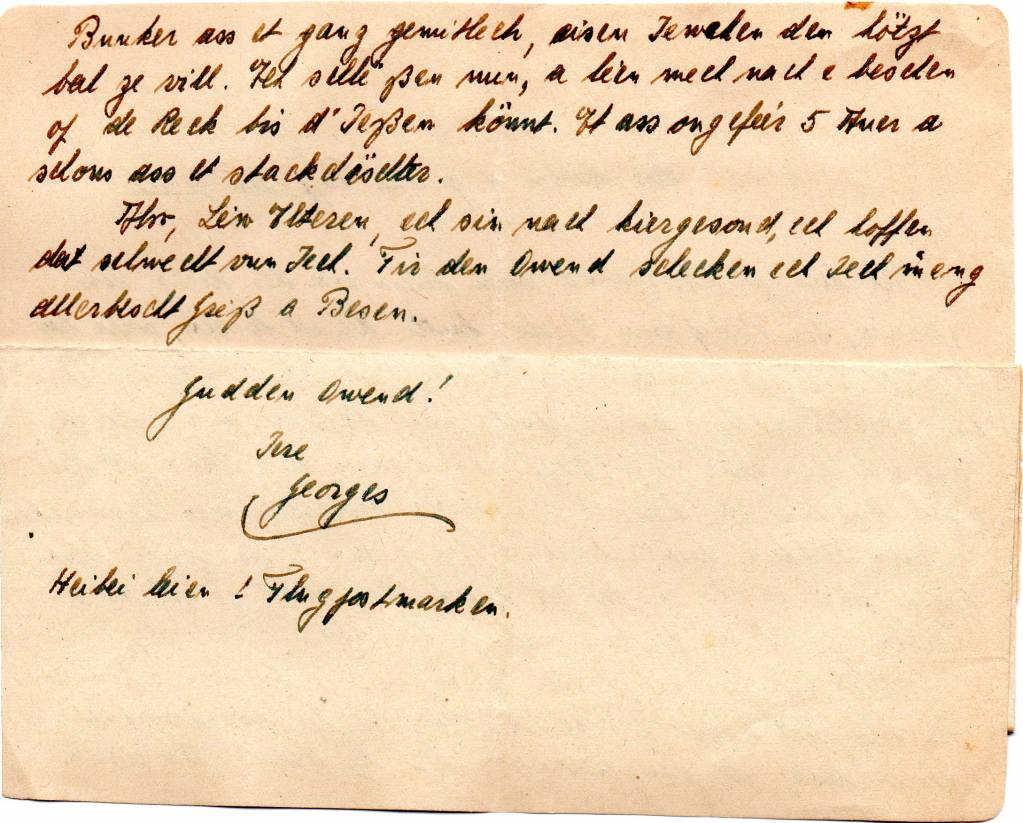 Bunker ass et ganz gemitlech, eisen Iewchen den hötzt
bal ze vill. Ech schléißen nun, a léen mech nach e beschen
of de Réck bis d'Ießen könnt. Et ass ongeféer 5 Auer a
schons ass et stackdéischter.
Also, Léiw Elteren, ech sin nach kiergesond, ech hoffen
dat selwecht vun Iech. Fir den Owend schecken ech Iech méng
allerbescht Gréiß a Besen.
Gudden Owend!
Iere
Georges
Heibei leien ! Flugpostmarken.